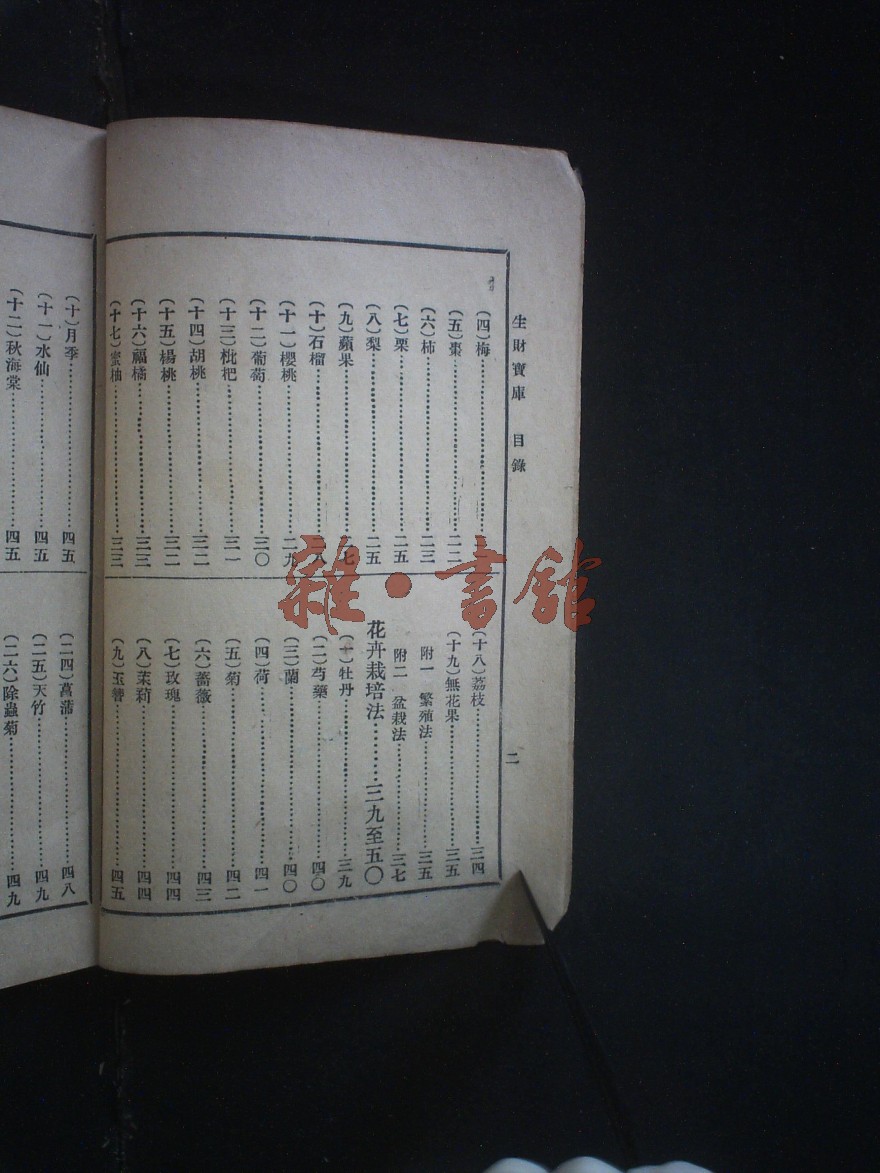 生財寶庫 目錄
二
(四)梅……二二
(五)棗……二二
(六)柿……二三
(七)栗……二五
(八)梨……二五
(九)蘋果……二七
(十)石榴……二八
(十一)櫻桃……二九
(十二)葡萄……三〇
(十三)枇杷……三一
(十四)胡桃……三二
(十五)楊桃……三二
(十六)福橘……三三
(十七)蜜柚……三三
(十八)荔枝……三四
(十九)無花果……三五
附一 繁殖法……三五
附二 盆栽法……三七
花卉栽培法……三九至五〇
(一)牡丹……三九
(二)芍藥……四〇
(三)蘭……四〇
(四)荷……四一
(五)菊……四二
(六)薔薇……四三
(七)玫瑰……四四
(八)茉莉……四四
(九)玉簪……四五
(十)月季……四五
(十一)水仙……四五
(十二)秋海棠……四五
(二四)菖蒲……四八
(二五)天竹……四九
(二六)除蟲菊……四九
雜·書館